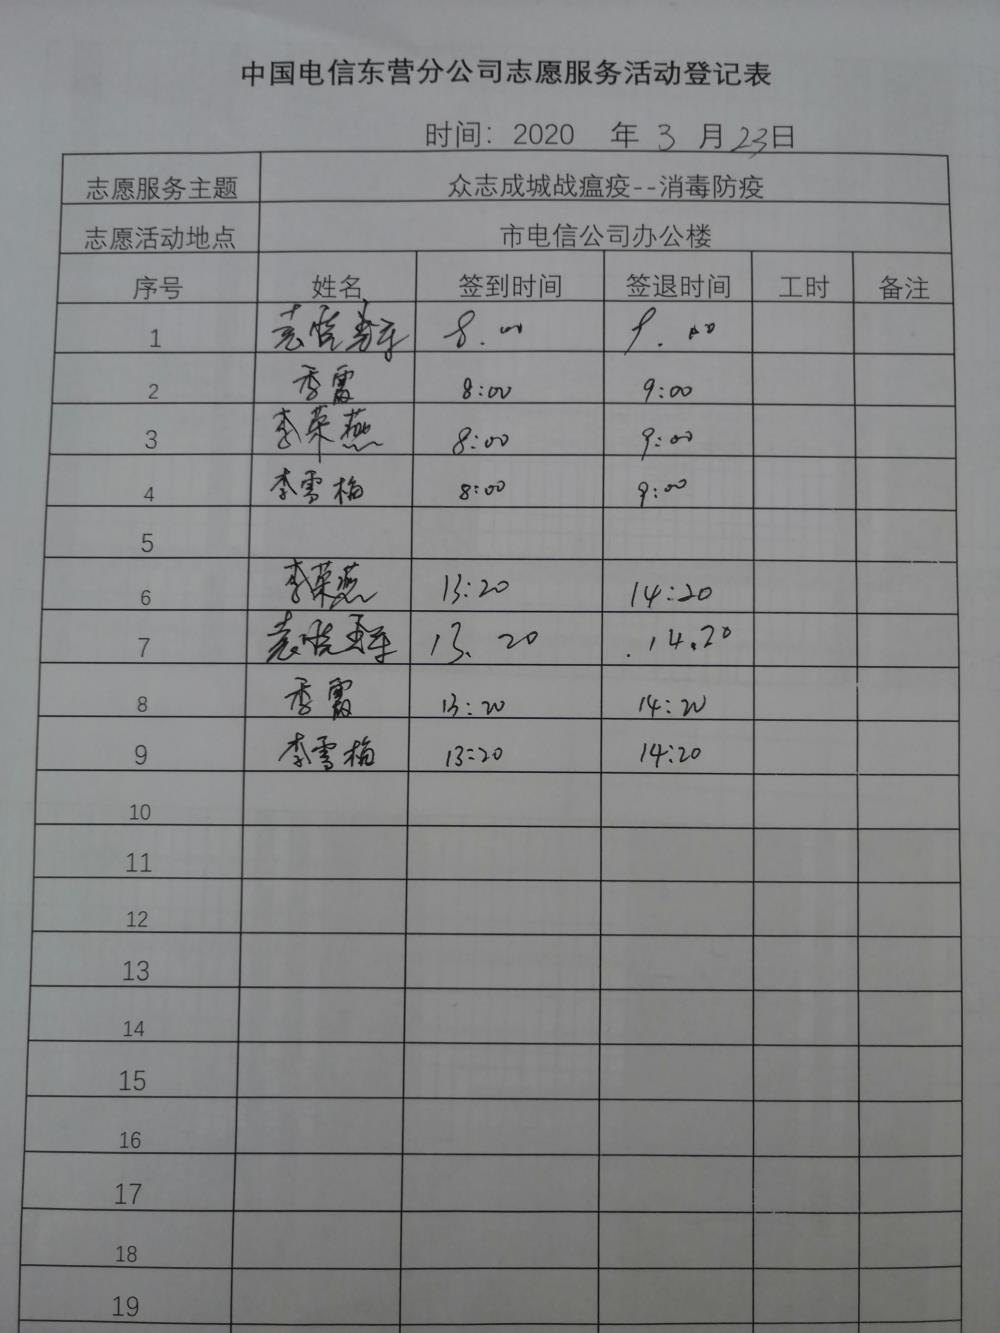 中国电信东营分公司志愿服务活动登记表
时间：2020 年 3 月 23日
志愿服务主题 众志成城战瘟疫--消毒防疫
志愿活动地点 市电信公司办公楼
序号 姓名 签到时间 签退时间 工时 备注
1 8.00 9.00
2 季霞 8:00 9:00
3 李荣燕 8:00 9:00
4 李雪梅 8:00 9:00
5
6 李荣燕 13:20 14:20
7 13.20 14.20
8 季霞 13:20 14:20
9 李雪梅 13:20 14:20
10
11
12
13
14
15
16
17
18
19